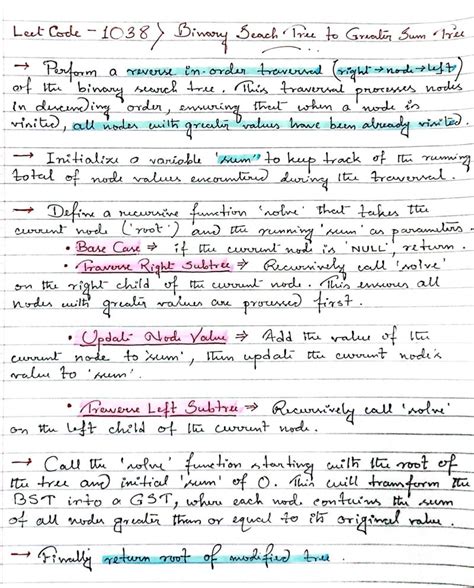 Leet Code - 1038 > Binary Seach Tree to Greater Sum Tree
→ Perform a reverse in-order traversal (right → node → left)
of the binary search tree. This traversal processes nodes
in descending order, ensuring that when a node is
visited, all nodes with greater values have been already visited.
→ Initialize a variable 'sum' to keep track of the running
total of node values encountered during the traversal.
→ Define a recursive function 'solve' that takes the
current node ('root') and the running 'sum' as parameters.
• Base Case ⇒ if the current node is 'NULL', return.
• Traverse Right Subtree ⇒ Recursively call 'solve'
on the right child of the current node. This ensures all
nodes with greater values are processed first.
• Update Node Value ⇒ Add the value of the
current node to 'sum', then update the current node's
value to 'sum'.
• Traverse Left Subtree ⇒ Recursively call 'solve'
on the left child of the current node.
→ Call the 'solve' function starting with the root of
the tree and initial 'sum' of 0. This will transform the
BST into a GST, where each node contains the sum
of all nodes greater than or equal to its original value.
→ Finally return root of modified tree.